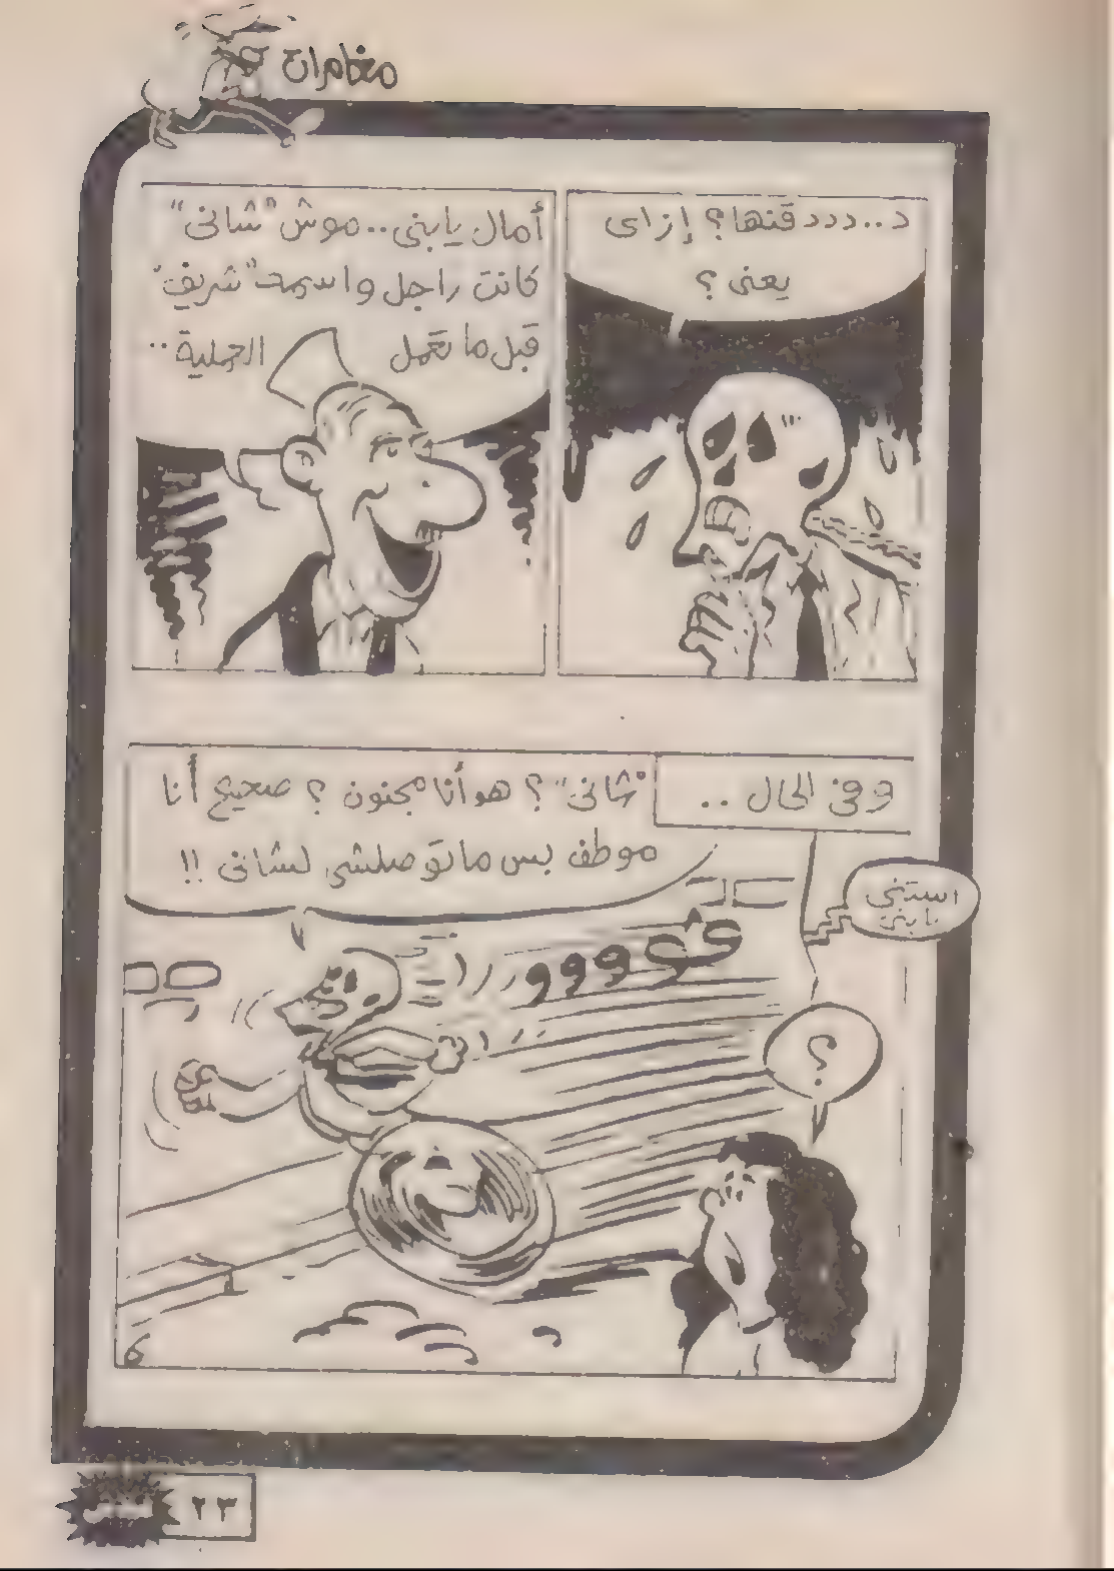 مغامرات
د..دددقنها؟ إزاى
يعنى؟
أمال يابنى..موش "شانى"
كانت راجل واسمه "شريف"
قبل ما تعمل العملية..
وفى الحال ..
"شانى"؟ هو أنا مجنون؟ صحيح أنا
موظف بس ماتوصلشى لشانى !!
استنى
يابنى
؟
٢٣